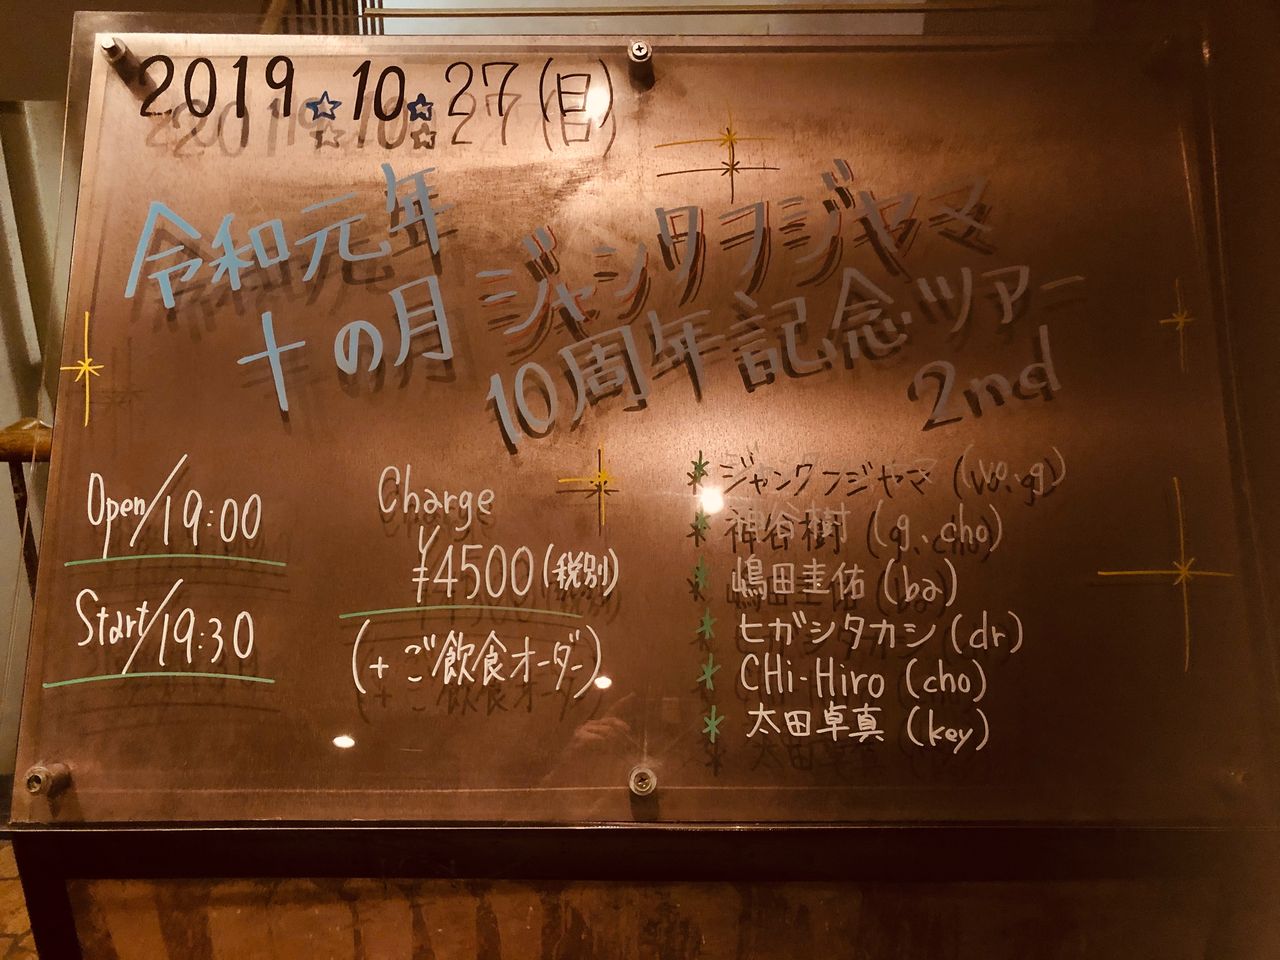 2019☆10☆27(日)
令和元年
十の月
ジャンクフジヤマ
10周年記念ツアー
2nd
Open/19:00
Start/19:30
Charge
¥4500(税別)
(+ ご飲食オーダー)
* ジャンクフジヤマ (vo、g)
* 神谷樹 (g、cho)
* 嶋田圭佑 (ba)
* ヒガシタカシ (dr)
* CHi-Hiro (cho)
* 太田卓真 (key)